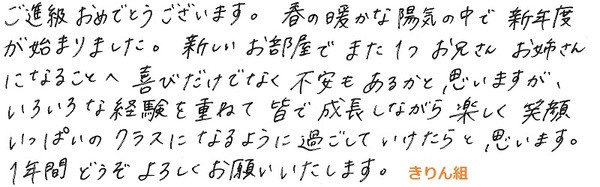 ご進級おめでとうございます。春の暖かな陽気の中で新年度
が始まりました。新しいお部屋でまた1つお兄さんお姉さん
になることへ喜びだけでなく不安もあるかと思いますが、
いろいろな経験を重ねて皆で成長しながら楽しく笑顔
いっぱいのクラスになるように過ごしていけたらと思います。
1年間どうぞよろしくお願いいたします。 きりん組